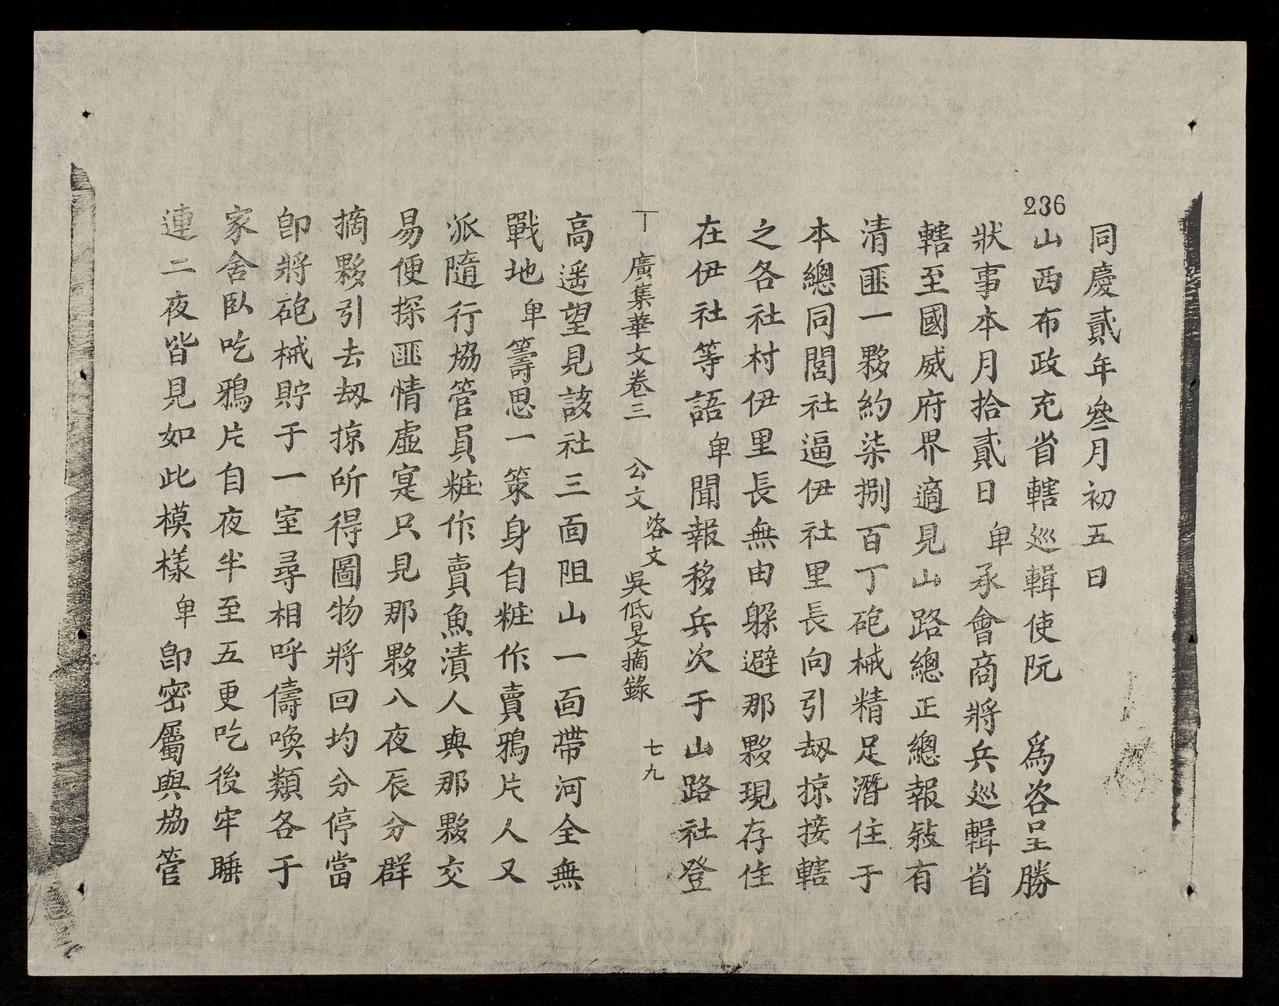 236
同慶貳年叄月初五日
山西布政充省轄巡輯使阮　為咨呈勝
狀事本月拾貳日卑承會商將兵巡輯省
轄至國威府界適見山路總正總報敍有
清匪一夥約柒捌百丁砲械精足潛住于
本總同閭社逼伊社里長向引刼掠接轄
之各社村伊里長無由躲避那夥現存住
在伊社等語卑聞報移兵次于山路社登
丁　廣集華文卷三　公文　咨文　吳低旻摘錄　七九
高遥望見該社三面阻山一面帶河全無
戰地卑籌思一策身自粧作賣鴉片人又
派隨行協管員粧作賣魚漬人與那夥交
易便探匪情虛寔只見那夥八夜辰分群
摘夥引去刼掠所得圖物將回均分停當
卽將砲械貯于一室尋相呼儔喚類各于
家舍臥吃鴉片自夜半至五更吃後牢睡
連二夜皆見如此模樣卑卽密屬與協管